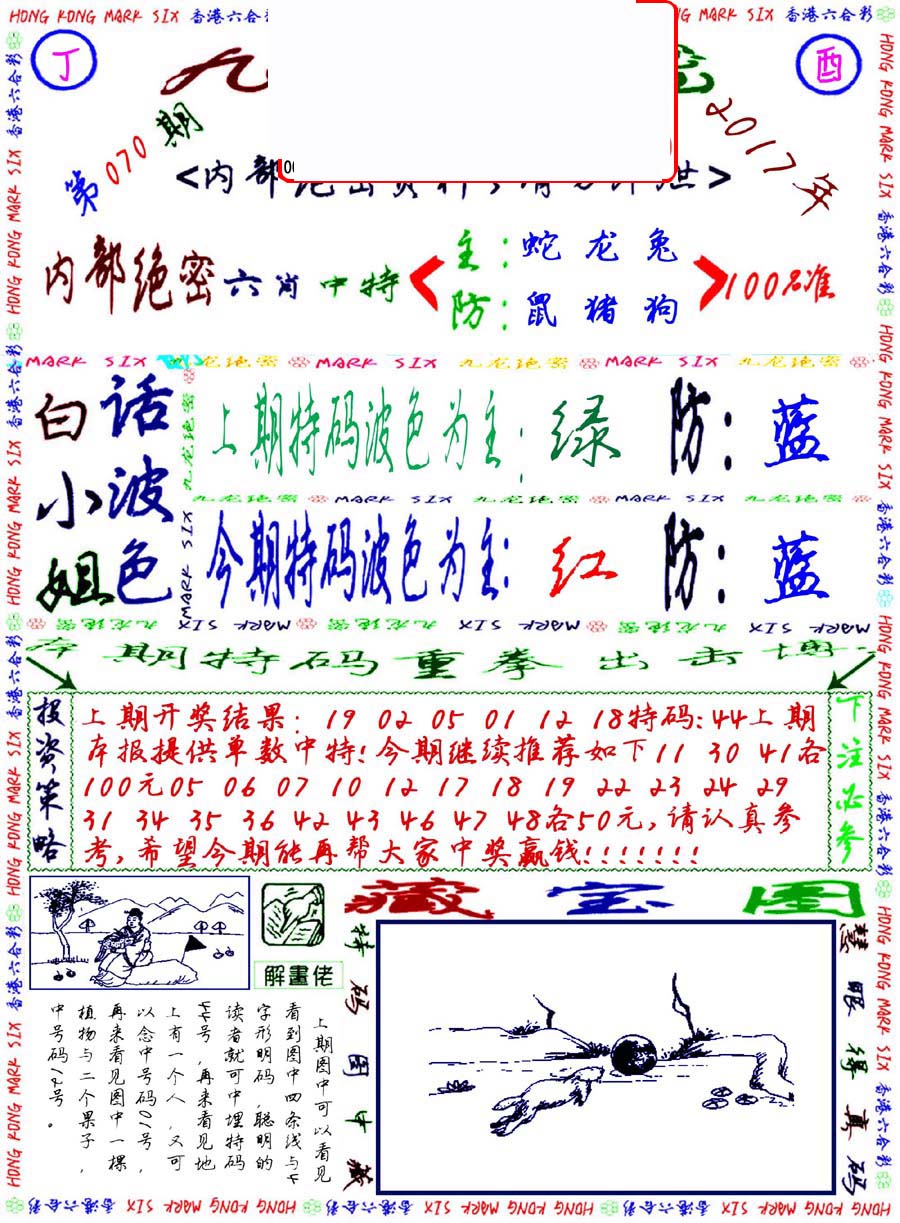 HONG KONG MARK SIX 香港六合彩
HONG KONG MARK SIX 香港六合彩
丁
酉
九
密
第070期
2017年
<内部绝密资料
>
内部绝密六肖中特
主:蛇 龙 兔
防:鼠 猪 狗
100%准
MARK SIX 九龙绝密 MARK SIX 九龙绝密 MARK SIX 九龙绝密
白话
小波
姐色
上期特码波色为主:绿 防:蓝
九龙绝密 MARK SIX 九龙绝密 MARK SIX 九龙绝密
今期特码波色为主:红 防:蓝
九龙绝密 MARK SIX 九龙绝密 MARK SIX 九龙绝密 MARK SIX
本期特码重拳出击博
投资策略
上期开奖结果: 19 02 05 01 12 18特码:44上期
本报提供单数中特!今期继续推荐如下11 30 41各
100元05 06 07 10 12 17 18 19 22 23 24 29
31 34 35 36 42 43 46 47 48各50元,请认真参
考,希望今期能再帮大家中奖赢钱!!!!!!!
下注必参
藏宝图
解畫佬
上期图中可以看见
看到图中四条线与4
字形明码,聪明的
读者就可中埋特码
44号,再来看见地
上有一个人,又可
以念中号码01号,
再来看见图中一棵
植物与二个果子,
中号码12号。
特码图中藏
慧眼得真码
HONG KONG MARK SIX 香港六合彩